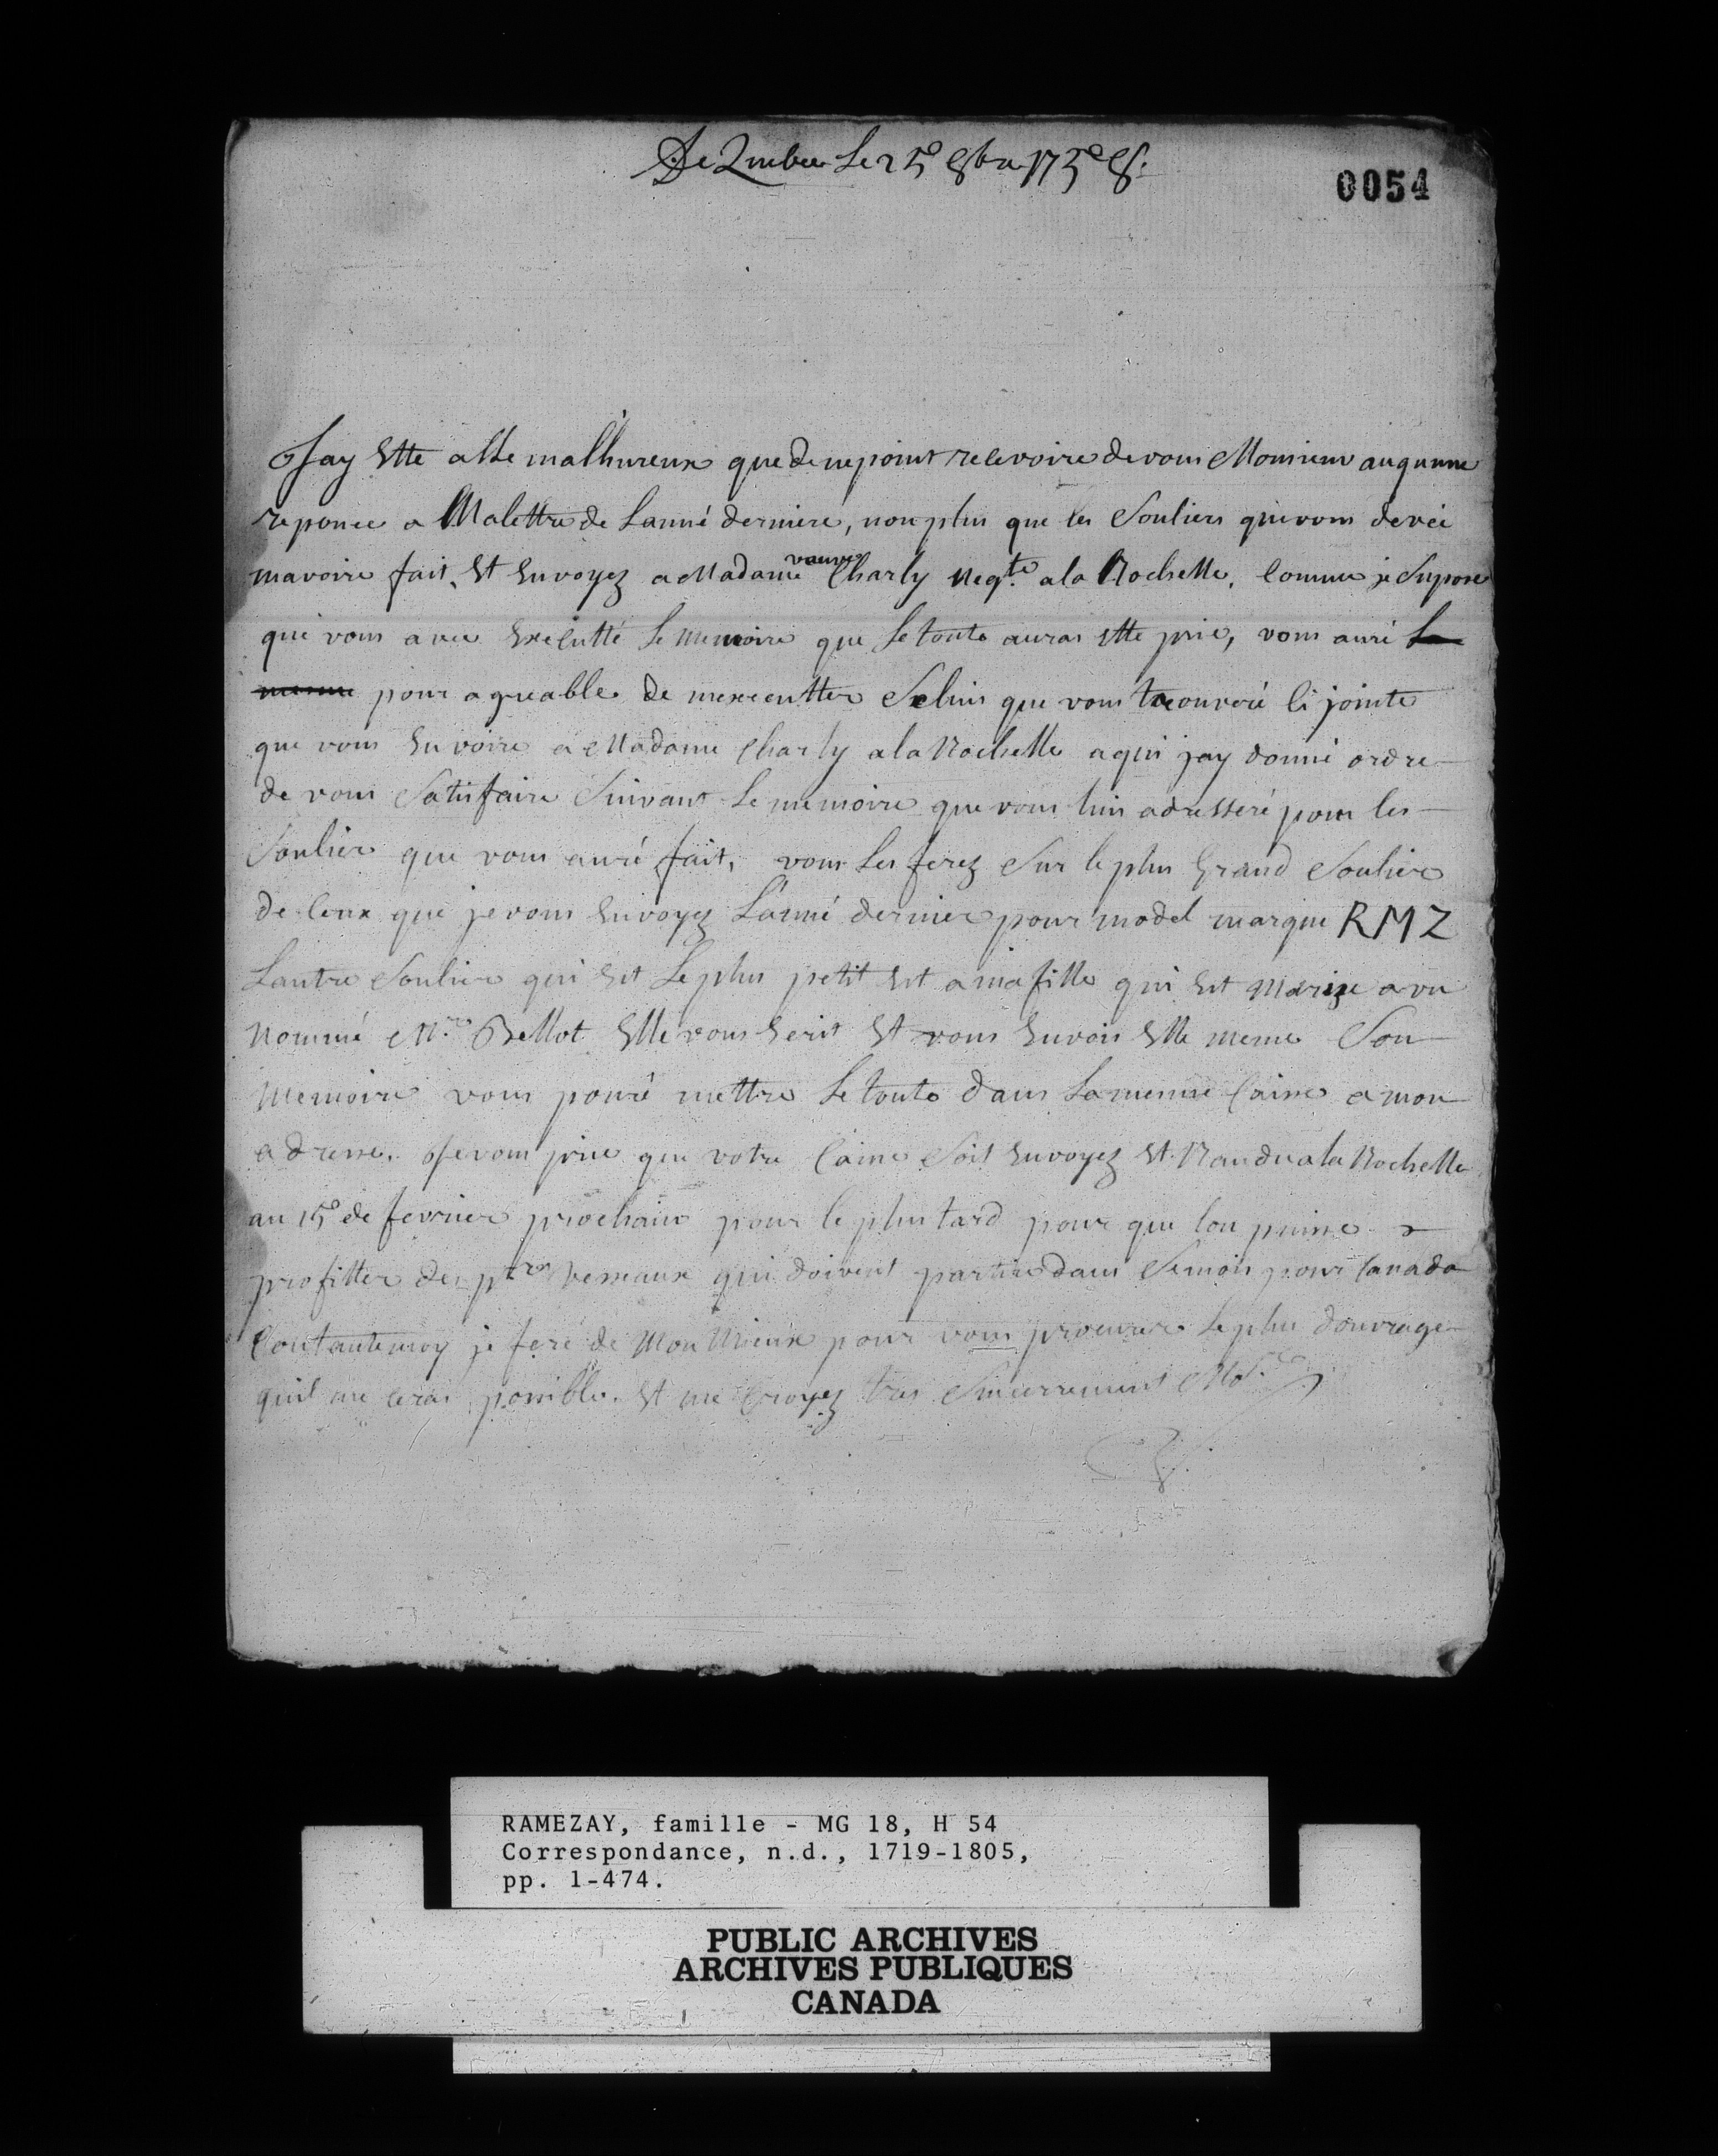 De Quebec Le 25e 8bre 1758.
0054
Jay Ette asse malhureux que de ne point recevoire de vous Monsieur auqunne
reponce a Ma lettre de Lanné derniere, non plus que les Souliers que vous devée
mavoire fait, Et Envoyez a Madame veuve Charly Negte a la Rochelle, Comme je Supose
que vous avee Exécutté Le Memoire que Le toute auras Ette pris, vous auré La
mesme pour agreable de mexecutter Seluis que vous trouveré Ci jointe
que vous Envoire a Madame Charly a la Rochelle a qui jay donné ordre
de vous Satisfaire Suivant Le memoire que vous luis adresseré pour les
Soulier que vous auré fait, vous Les ferez Sur le plus Grand Soulier
de Ceux que je vous Envoyez L'anné dernier pour model marque RMZ
Lautre Soulier qui Est Le plus petit Est a ma fille qui Est Mariee a un
Nommé Mr. Bellot Elle vous Ecrit Et vous Envois Elle meme Son
Memoire vous pouré mettre Le toute dans La mesme Caisse a mon
adresse. Je vous prie que votre Caisse Soit Envoyez Et Randue a la Rochelle
au 15e de fevrier prochain pour le plus tard pour que lon puisse
profitter des prs Vesseaux qui doivent partire dans Se mois pour Canada
Contante moy je feré de Mon Mieux pour vous procurer Le plus douvrage
quil me ceras possible. Et me Croyez tres Sincerrement Mr.
RAMEZAY, famille - MG 18, H 54
Correspondance, n.d., 1719-1805,
pp. 1-474.
PUBLIC ARCHIVES
ARCHIVES PUBLIQUES
CANADA